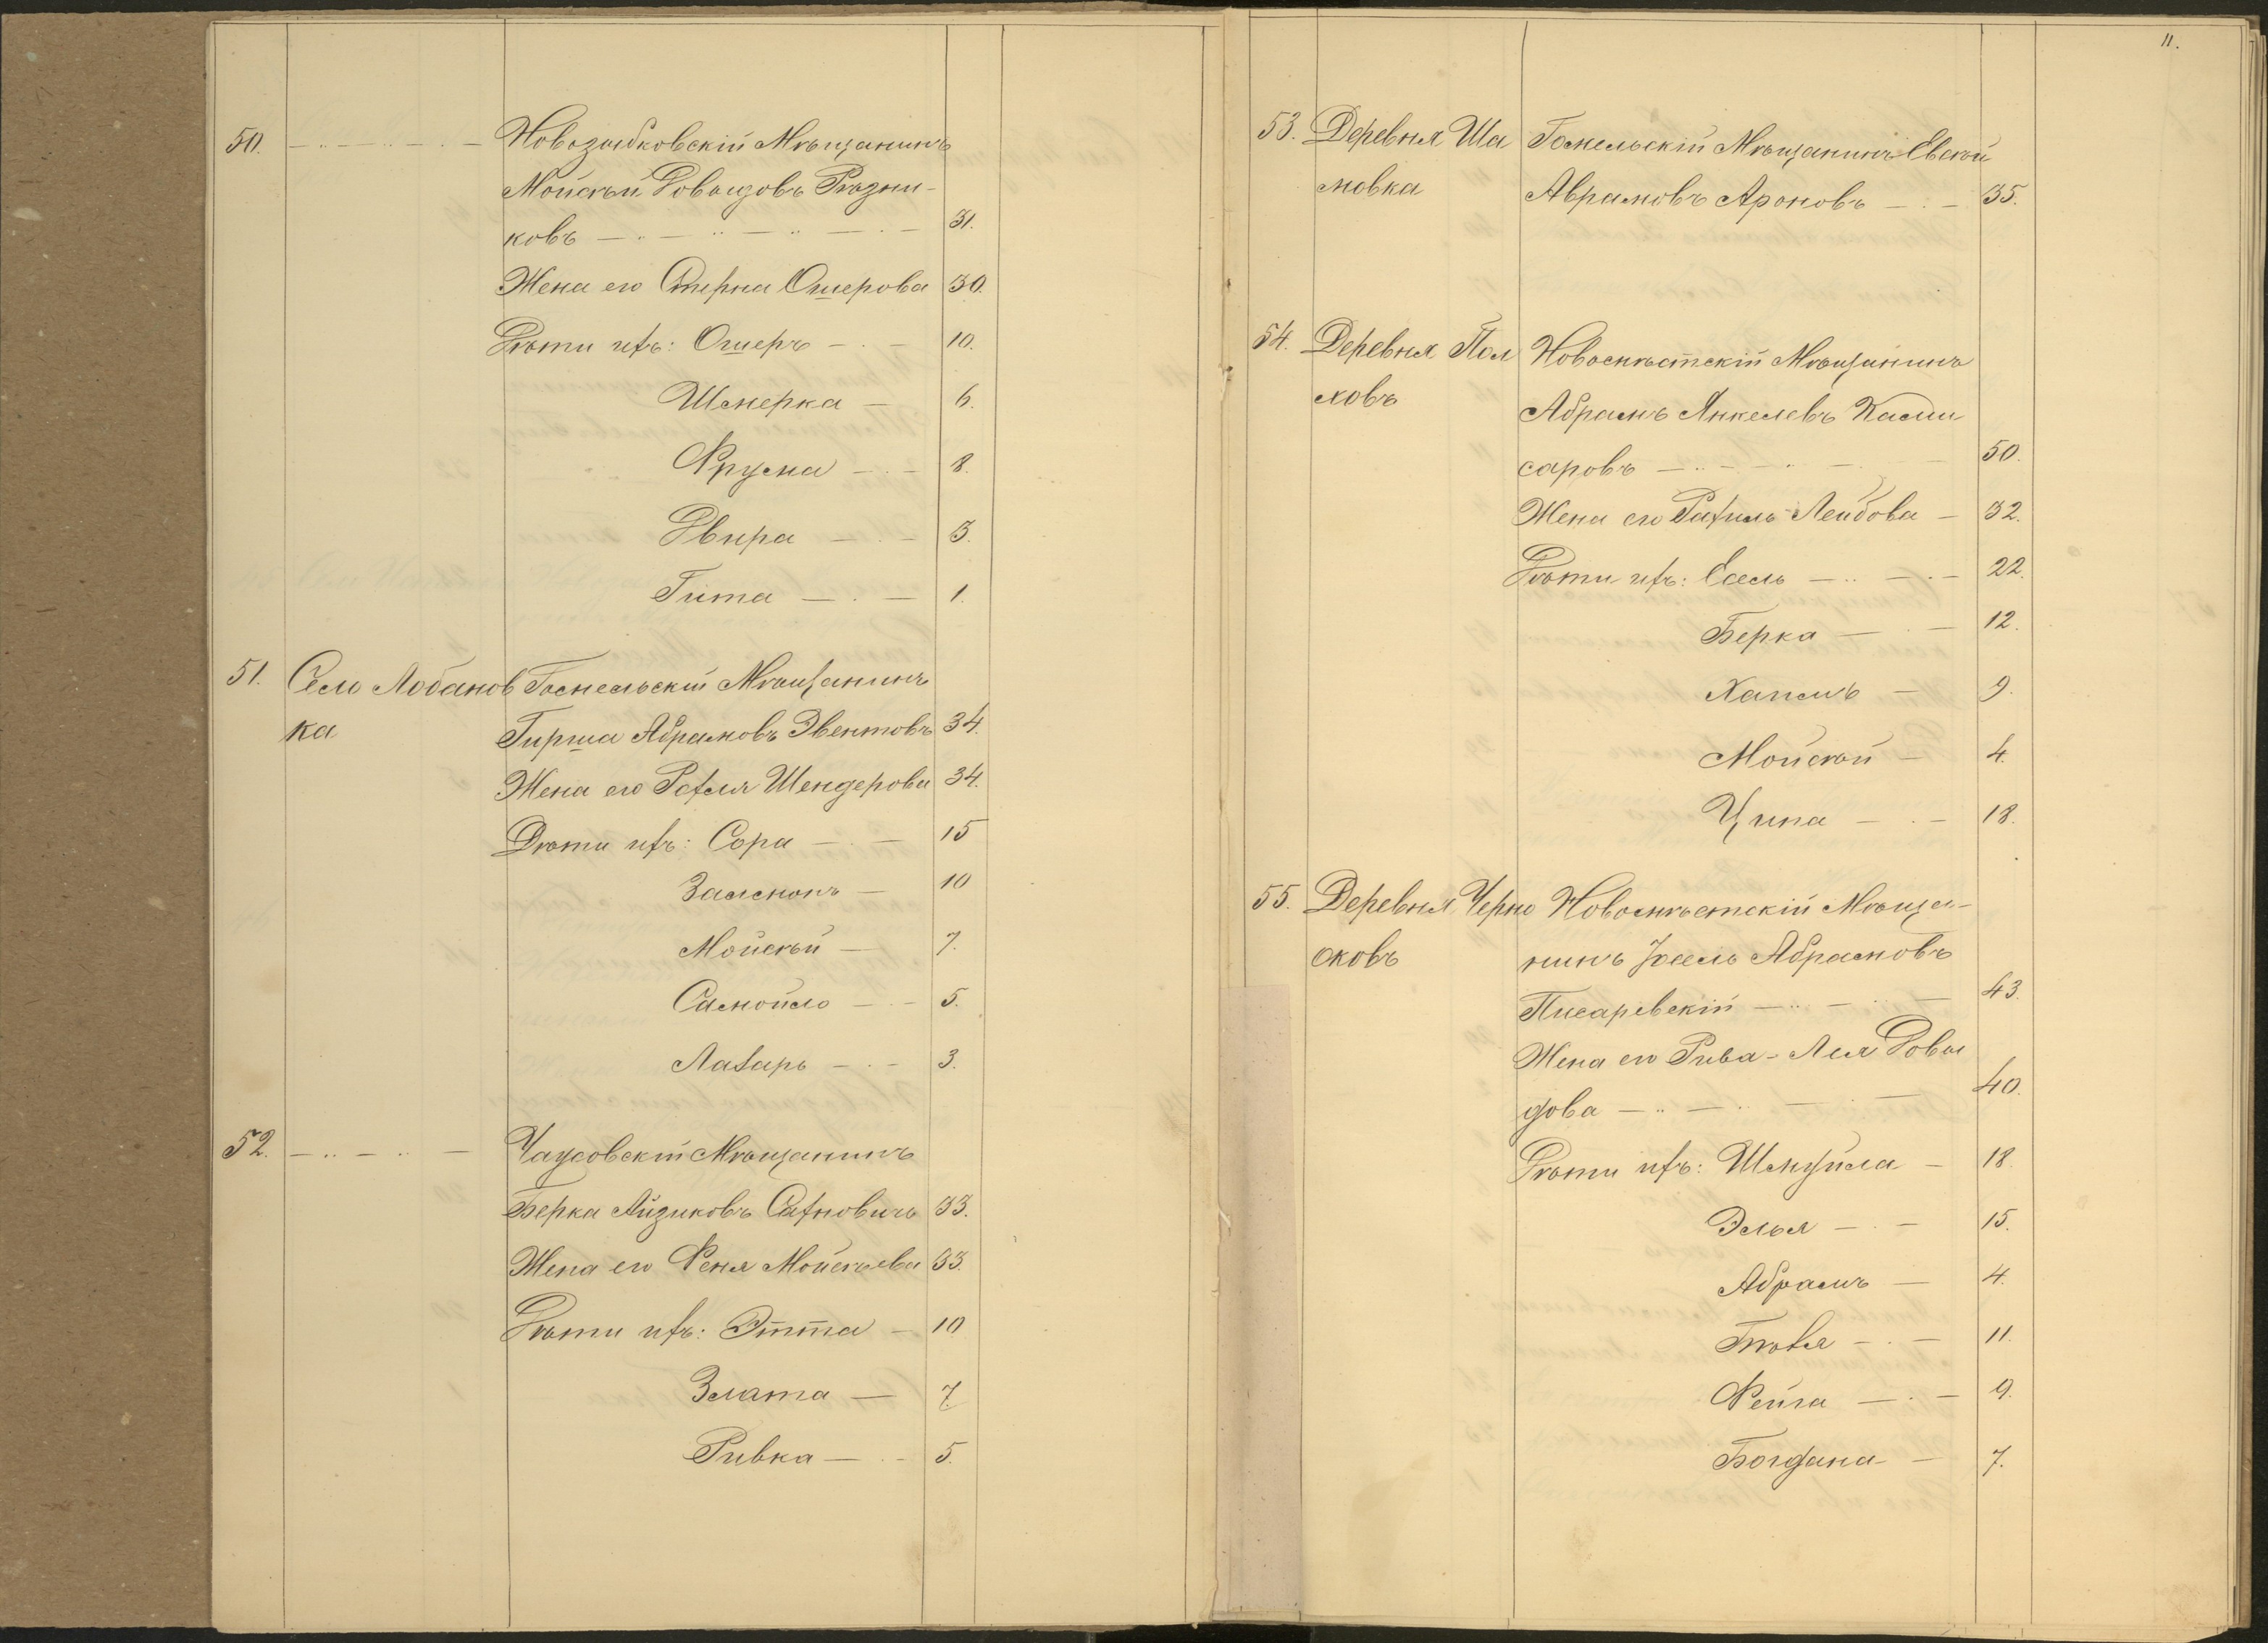 50. Новозыбковскій Мѣщанинъ
Мойсѣй Довыдовъ Рѣзни-
ковъ 31.
Жена его Стерна Ошерова 30.
Дѣти ихъ: Ошеръ 10.
Шмерка 6.
Фрума 8.
Двира 3.
Гита 1.
51. Село Лобанов Гомельскій Мѣщанинъ
ка Гирша Абрамовъ Эвентовъ 34.
Жена его Рохля Шендерова 34.
Дѣти ихъ: Сора 15
Залмонъ 10
Мойсѣй 7.
Самойло 5.
Лазарь 3.
52. Чаусовскій Мѣщанинъ
Берка Айзиковъ Сахновичъ 33.
Жена его Феня Мойсѣева 33.
Дѣти ихъ: Этта 10
Злата 7.
Ривка 5.
11.
53. Деревня Ша Гомельскій Мѣщанинъ Евсѣй
мовка Аврамовъ Ароновъ 35.
54. Деревня Пол Новомѣстскій Мѣщанинъ
ховъ Абрамъ Янкелевъ Калми
саровъ 50.
Жена его Рахиль Лейбова 32.
Дѣти ихъ: Есель 22.
Берка 12.
Хаимъ 9.
Мойсѣй 4.
Ципа 18.
55. Деревня Черно Новомѣстскій Мѣща-
оковъ нинъ Іосель Абрамовъ
Писаревскій 43.
Жена его Рива-Лея Довы
дова 40.
Дѣти ихъ: Шмуйла 18.
Элья 15.
Абрамъ 4.
11.
Фейга 9.
Богдана 7.